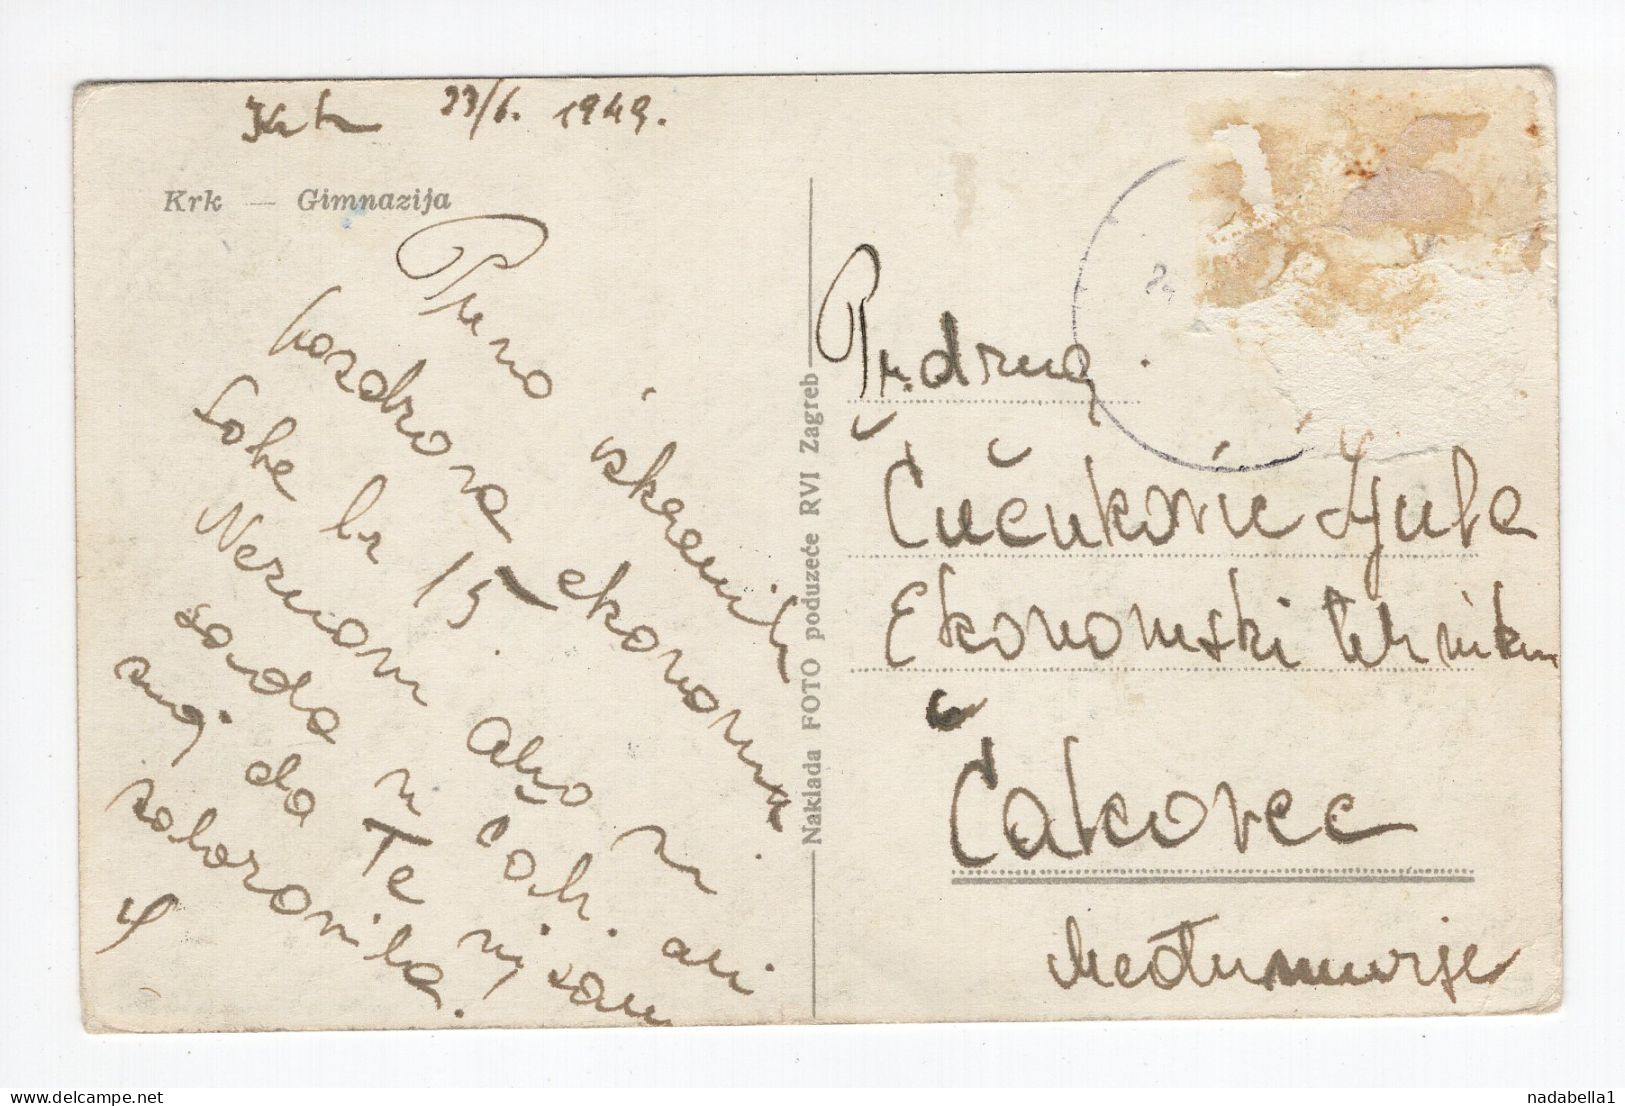 Krk 23/6. 1949.
Krk — Gimnazija
Puno iskrenih
pozdrava ekonomima
Sobe br 15.
Neznam ako si
sada u Čak. ali
znaj da Te nisam
zaboravila.
Naklada FOTO poduzeće RVI Zagreb
Pr. drug.
Čučuković Ljuba
Ekonomski tehnikum
Čakovec
Međumurje
nadabella1